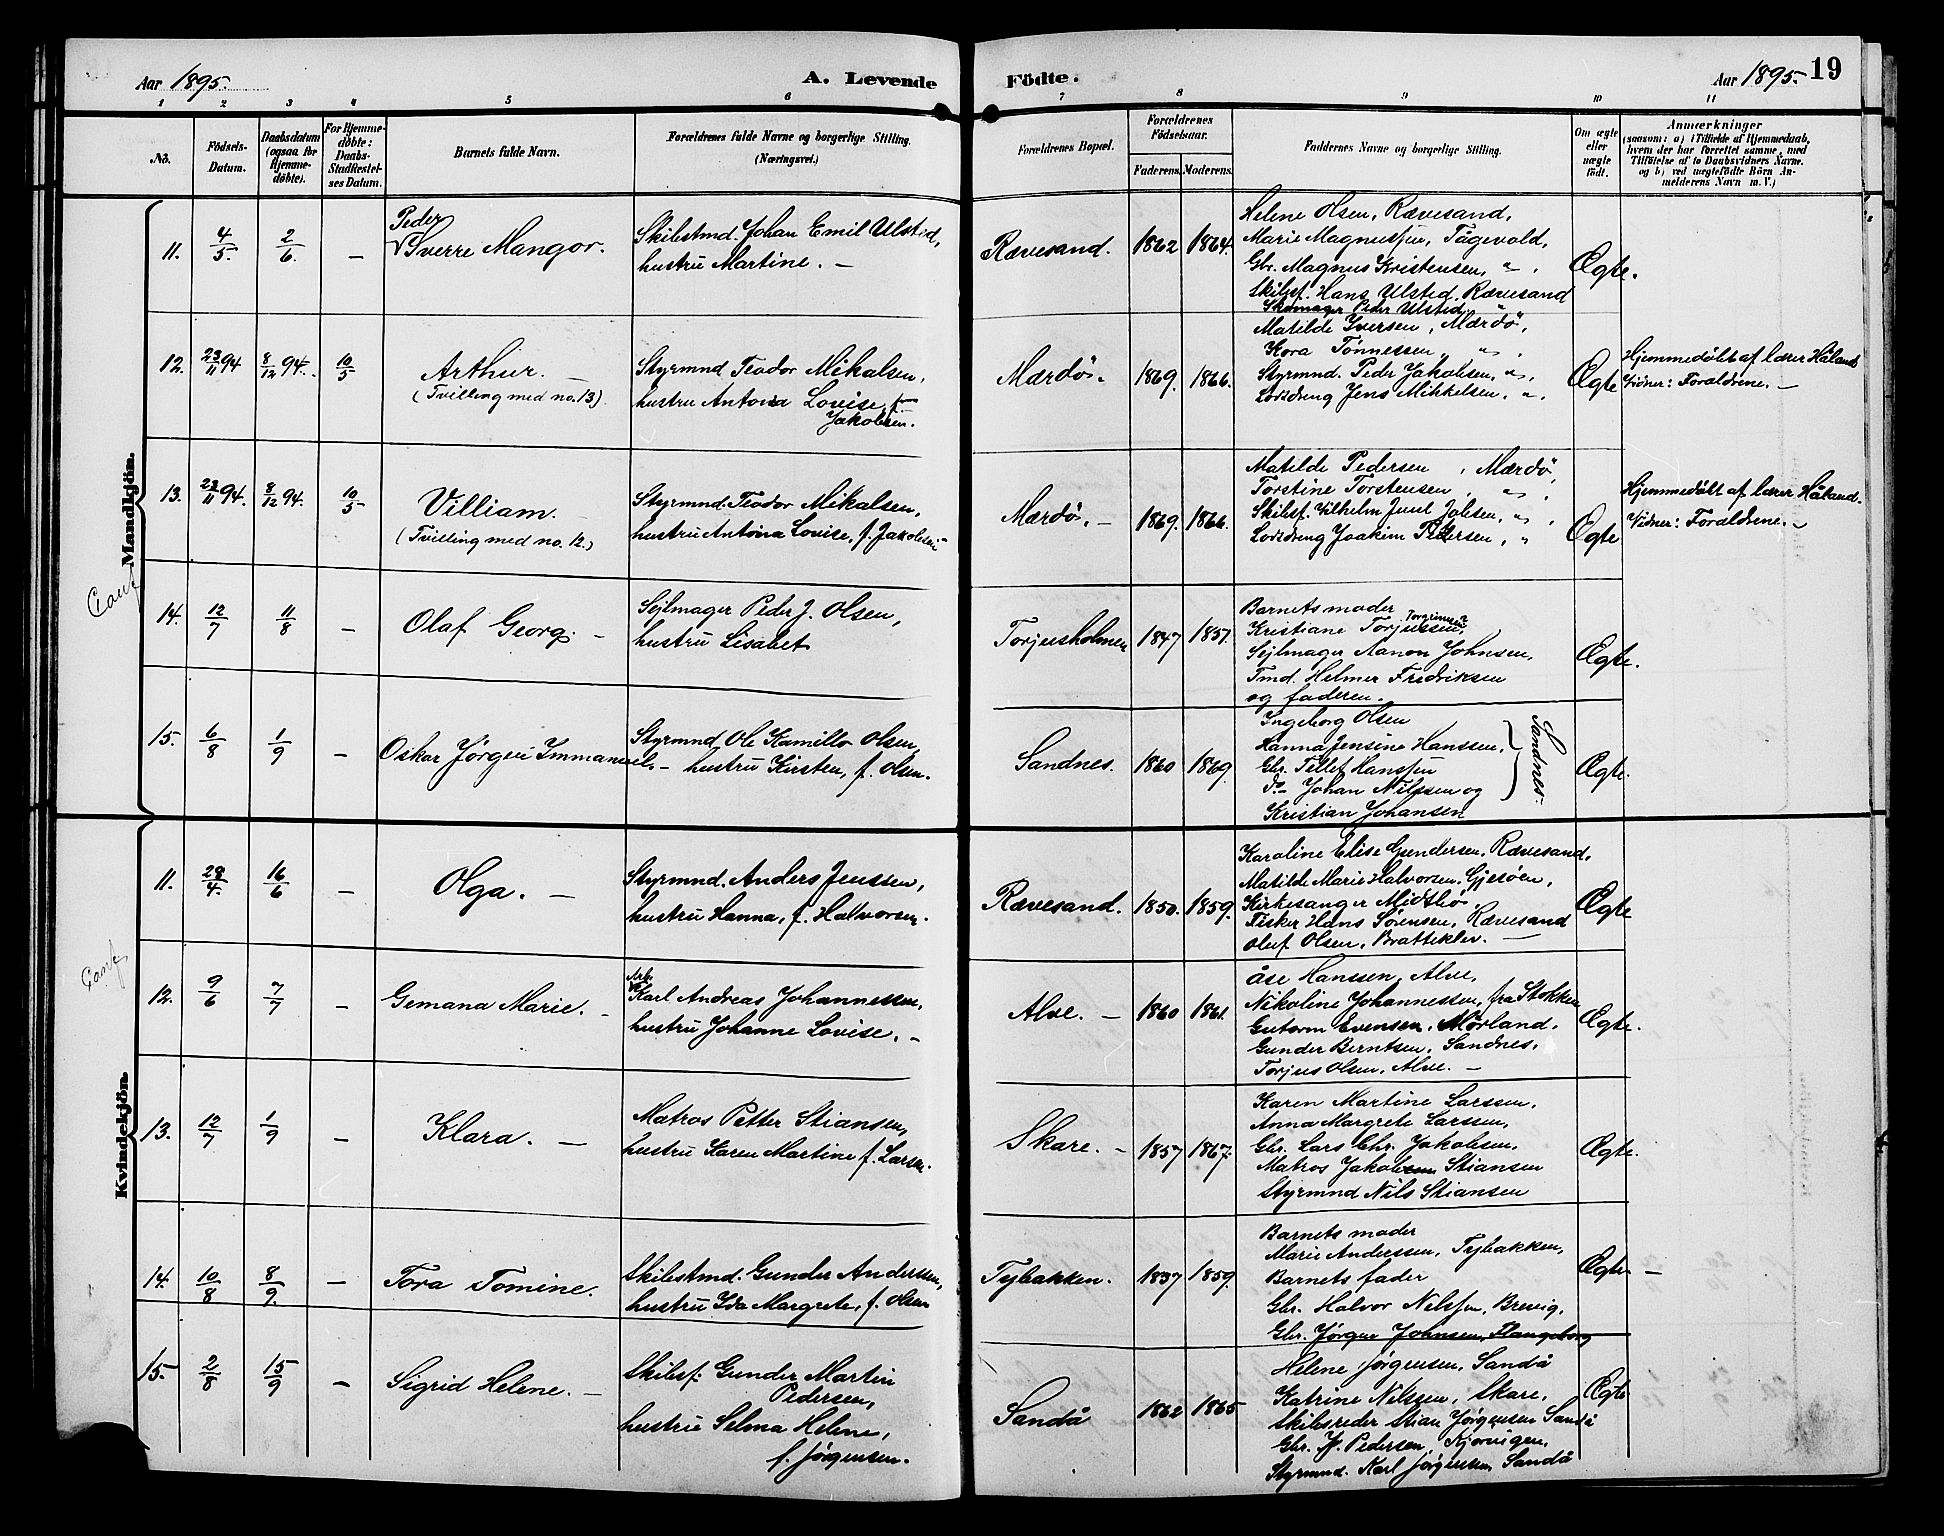 Aar 1895. A. Levende Födte. Aar 1895. 19
1 2 3 4 5 6 7 8 9 10 11
No.
Födsels-
Datum.
Daabsdatum
(ogsaa for
Hjemme-
döbte).
For Hjemme-
döbte:
Daabs-
Stadfæstel-
ses Datum.
Barnets fulde Navn.
Forældrenes fulde Navne og borgerlige Stilling.
(Næringsvei.)
Forældrenes Bopæl.
Forældrenes
Födselsaar.
Faderens. Moderens.
Faddernes Navne og borgerlige Stilling.
Om ægte
eller
uægte
födt.
Anmærkninger
(saasom: a) i Tilfælde af Hjemmedaab,
hvem der har forrettet samme, med
Tilföielse af to Daabsvidners Navne.
og b) ved uægtefödte Börn An-
melderens Navn m. V.)
Mandkjön.
Conf
11. 4/5. 2/6. –
Peder
Sverre Mangor.
Skibstmd. Johan Emil Ulsted,
hustru Martine. –
Rævesand. 1862 1864.
Helene Olsen, Rævesand,
Marie Magnussen, Tågevold,
Gbr. Magnus Kristensen, " .
Skibsf. Hans Ulsted, Rævesand
Skomager Peder Ulsted. "
Ægte.
12. 23/11 94 8/12 94. 10/5
Arthur. –
(Tvilling med no. 13).
Styrmnd Teodor Mikalsen,
hustru Antona Lovise, f.
Jakobsen.
Mærdö. 1869. 1866.
Matilde Iversen, Mærdö,
Kora Tönnessen, " .
Styrmnd. Peder Jakobsen, " .
Lodsdreng Jens Mikkelsen, " .
Ægte
Hjemmedøbt af lærer Håland
Vidner: Forældrene. –
13. 23/11 94. 8/12 94. 10/5
Villiam.
(Tvilling med no. 12.)
Styrmnd. Teodor Mikalsen,
hustru Antona Lovise, f. Jakobsen
Mærdö. – 1869. 1866.
Matilde Pedersen, Mærdö,
Torstine Torstensen, " .
Skibsf. Vilhelm Juul Jobsen, " .
Lodsdreng Joakim Pedersen, "
Ægte
Hjemmedøbt af lærer Håland.
Vidner: Forældrene. –
14. 12/7 11/8 –
Olaf Georg. –
Sejlmager Peder J. Olsen,
hustru Lisabet
Torjusholmen 1847 1851.
Barnets moder
Torgrimsen
Kristiane Torjussen,
Sejlmager Aanon Johnsen,
Tmd. Helmer Fredriksen
og faderen.
Ægte.
15. 6/8 1/9 –
Oskar Jørgen Immanuel. –
Styrmnd Ole Kamillo Olsen,
hustru Kirsten, f. Olsen.
Sandnes. 1860 1869.
Ingeborg Olsen
Hanna Jensine Hanssen,
Gbr. Tellef Hanssen
Do– Johan Nilssen og
Kristian Johansen
Sandnes.
Ægte.
Kvindekjön.
Conf
11. 28/4. 16/6 –
Olga. –
Styrmnd. Anders Jenssen,
hustru Hanna, f. Halvorsen.
Rævesand. 1850. 1859.
Karoline Elise Gundersen, Rævesand,
Matilde Marie Halvorsen, Gjesöen,
Kirkesanger Midtbö,
Fisker Hans Sørensen, Rævesand
Oluf Olsen, Bratteklev. –
Ægte
12. 9/6 7/7 –
Gemana Marie. –
Arb.
Karl Andreas Johannessen,
hustru Johanne Lovise. –
Alve. – 1860 1861.
Åse Hanssen, Alve,
Nikoline Johannessen, fra Stokken
Gutorm Evensen, Mørland.
Gunder Berntsen, Sandnes,
Torjus Olsen, Alve. –
Ægte.
13. 12/7 1/9 –
Klara. –
Matros Petter Stiansen,
hustru Karen Martine f. Larsen.
Skare. – 1857 1867.
Karen Martine Larssen,
Anna Margrete Larssen,
Gbr. Lars Chr. Jakobsen,
Matros Jakob Stiansen
Styrmnd Nils Stiansen
Ægte.
14. 10/8 8/9. –
Tora Tomine.
Skibstmd. Gunder Anderssen,
hustru Ida Margrete, f. Olsen
Tybakken. 1837 1859.
Barnets moder
Marie Anderssen, Tybakken,
Barnets fader
Gbr. Halvor Nilssen, Brevig,
Gbr. Jørgen Johnsen, Flangeborg
Ægte. –
15. 2/8 15/9 –
Sigrid Helene. –
Skibsf: Gunder Martin
Pedersen,
hustru Selma Helene,
f. Jørgensen.
Sandå 1862 1865
Helene Jørgensen, Sandå
Katrine Nilssen, Skare,
Skibsreder Stian Jørgensen Sandå
Gbr. P. Pedersen, Kjørvigen,
Styrmnd. Karl Jørgensen, Sandå
Ægte